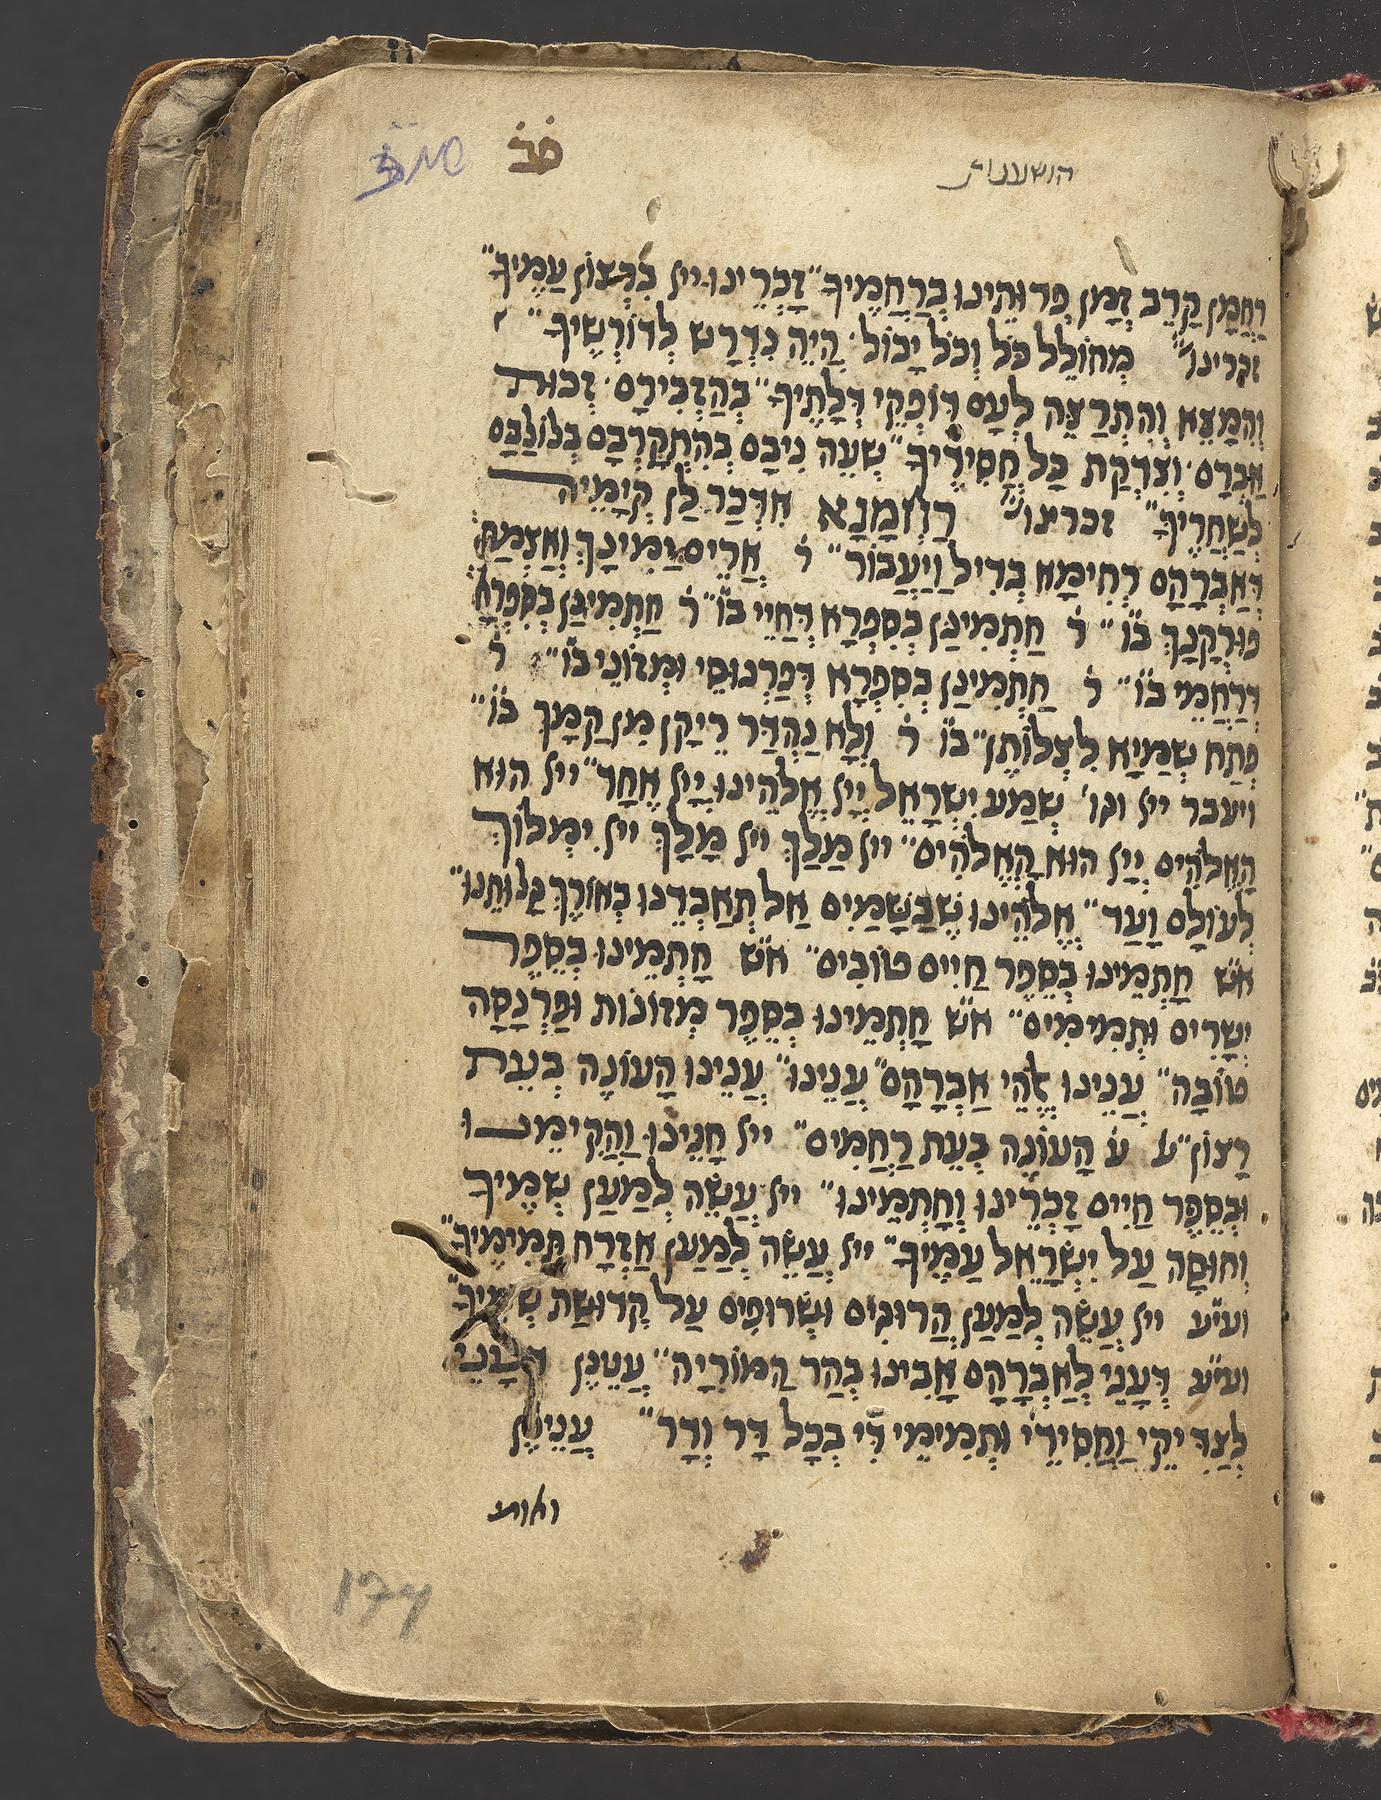 הושענות
סב
רַחֲמָן קָרֵב זְמָן פְּדוּתֵינוּ בְּרַחֲמֶיךָ״ זָכְרֵינוּ ייל בִּרְצוֹן עַמֶּיךָ״
זכרינו״ מְחוֹלֵל כֹּל וְכֹל יָכוֹל׳ הֱיֵה נִדְרָשׁ לְדוֹרְשֶׁיךָ״
וְהִמָּצֵא וְהִתְרַצֵּה לְעָם דּוֹפְקֵי דְּלָתֶיךָ״ בְּהַזְכִּירָם׳ זְכוּת
אַבְרָם׳ וְצִדְקַת כָּל חֲסִידֶיךָ״ שְׁעֵה נִיבָם בְּהִתְקָרְבָם בְּלוּלַבָּם
לְשַׁחֲרֶיךָ״ זכרינו״ רַחֲמָנָא אִדְכַר לַן קְיָמֵיהּ
דְּאַבְרָהָם רְחִימָא בְּדִיל וַיַּעֲבוֹר״ ר׳ אֲרֵים יַמִּינָךְ וְאַצְמַח
פּוּרְקָנָךְ בו״ ר׳ חַתְמִינַן בְּסִפְרָא דְּחַיֵּי בו״ ר׳ חַתְמִינַן בְּסִפְרָא
דְּרַחֲמֵי בו״ ר׳ חַתְמִינַן בְּסִפְרָא דְּפַרְנוּסֵי וּמְזוֹנֵי בו״ ר׳
פְּתַח שְׁמַיָּא לִצְלוֹתָן״ בו׳ ר׳ וְלָא נַהְדַּר רֵיקָן מִן קַמָּךְ בו״
ויעבר ייל וגו׳ שְׁמַע יִשְׂרָאֵל יְיָל אֱלֹהֵינוּ יְיָל אֶחָד״ ייל הוּא
הָאֱלֹהִים יְיָל הוּא הָאֱלֹהִים״ ייל מֶלֶךְ ייל מָלָךְ ייל יִמְלוֹךְ
לְעוֹלָם וָעַד״ אֱלֹהֵינוּ שֶׁבַּשָּׁמַיִם אַל תְּאַבְּדֵנוּ בְּאוֹרֶךְ גָּלוּתֵנוּ״
אש״ חָתְמֵינוּ בְּסֵפֶר חַיִּים טוֹבִים״ אש״ חָתְמֵינוּ בְּסֵפֶר
יְשָׁרִים וּתְמִימִים״ אש״ חָתְמֵינוּ בְּסֵפֶר מְזוֹנוֹת וּפַרְנָסָה
טוֹבָה״ עֲנֵינוּ אֱלֹהֵי אַבְרָהָם עֲנֵינוּ״ עֲנֵינוּ הָעוֹנֶה בְּעֵת
רָצוֹן״ ע׳ ע׳ הָעוֹנֶה בְּעֵת רַחֲמִים״ ייל חָנֵּינוּ וַהֲקִימֵנוּ
וּבְסֵפֶר חַיִּים זָכְרֵינוּ וְחָתְמֵינוּ״ ייל עֲשֵׂה לְמַעַן שְׁמֶיךָ
וְחוּסָה עַל יִשְׂרָאֵל עַמֶּיךָ״ ייל עֲשֵׂה לְמַעַן אֶזְרָח תְּמִימֶיךָ״
ועי״ע ייל עֲשֵׂה לְמַעַן הֲרוּגִים וּשְׂרוּפִים עַל קְדוּשַּׁת שְׁמֶיךָ״
ועי״ע דְּעָנֵי לְאַבְרָהָם אָבִינוּ בְּהַר הַמּוֹרִיָּה״ עֲנֵינַן דְּעָנֵי
לְצַדִּיקֵי וַחֲסִידֵי וּתְמִימֵי דִּי בְּכָל דָּר וְדָר״ עֲנֵינַן
ואות
174